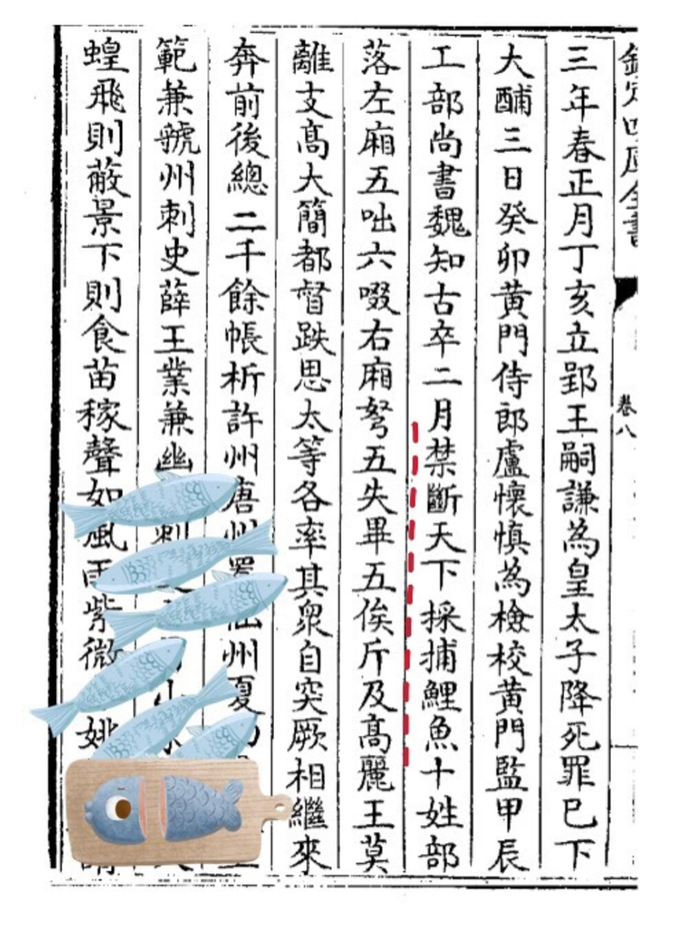 欽定四庫全書
卷八
三年春正月丁亥立郢王嗣謙為皇太子降死罪已下
大酺三日癸卯黄門侍郎盧懷慎為檢校黄門監甲辰
工部尚書魏知古卒二月禁斷天下採捕鯉魚十姓部
落左廂五咄六啜右廂弩五失畢五俟斤及髙麗王莫
離支髙大簡都督跌思太等各率其衆自突厥相繼來
奔前後總二千餘帳析許州唐州置仙州夏
範兼虢州刺史薛王業兼幽刺
蝗飛則蔽景下則食苗稼聲如風雨紫微姚